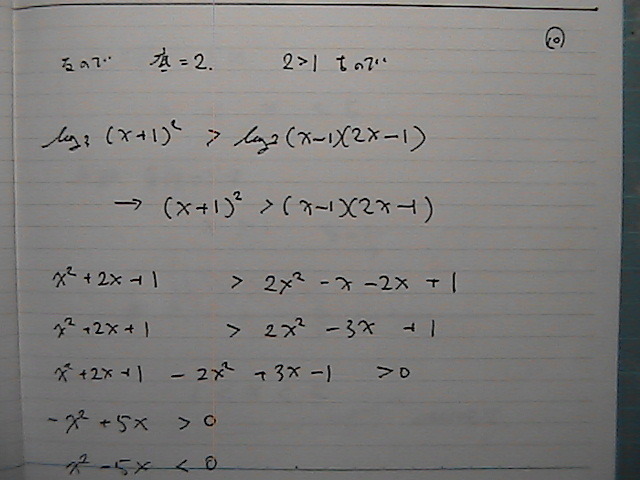 ⑩
なので 底=2. 2>1 なので
log₂ (x+1)² > log₂(x-1)(2x-1)
→ (x+1)² > (x-1)(2x-1)
x² + 2x + 1 > 2x² - x - 2x + 1
x² + 2x + 1 > 2x² - 3x + 1
x² + 2x + 1 - 2x² + 3x - 1 > 0
- x² + 5x > 0
x² - 5x < 0